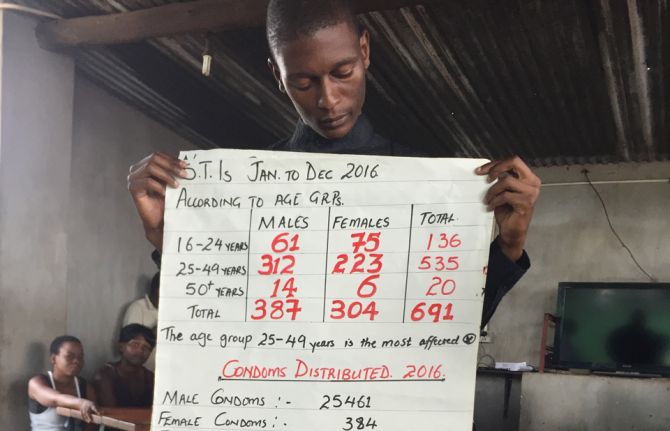 S.T.Is JAN. TO DEC 2016
ACCORDING TO AGE GRPs.
MALES FEMALES TOTAL.
16-24 YEARS 61 75 136
25-49 YEARS 312 223 535
50+ YEARS 14 6 20
TOTAL 387 304 691
The age group 25-49 years is the most affected
CONDOMS DISTRIBUTED. 2016.
MALE CONDOMS :- 25461
FEMALE CONDOMS :- 384